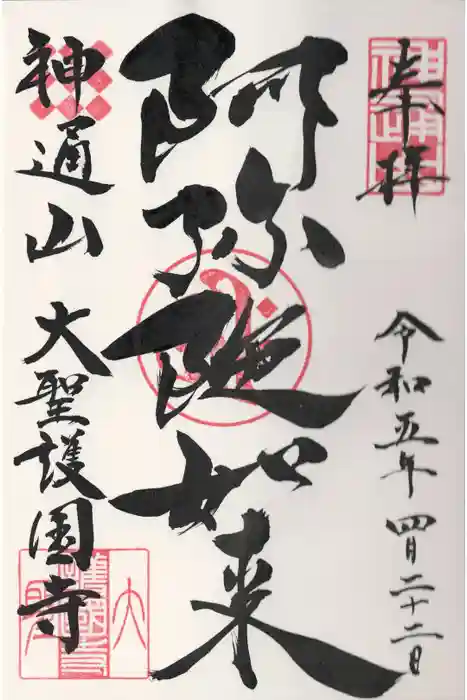 奉拝
令和五年 四月二十二日
阿弥陀如来
神通山 大聖護国寺